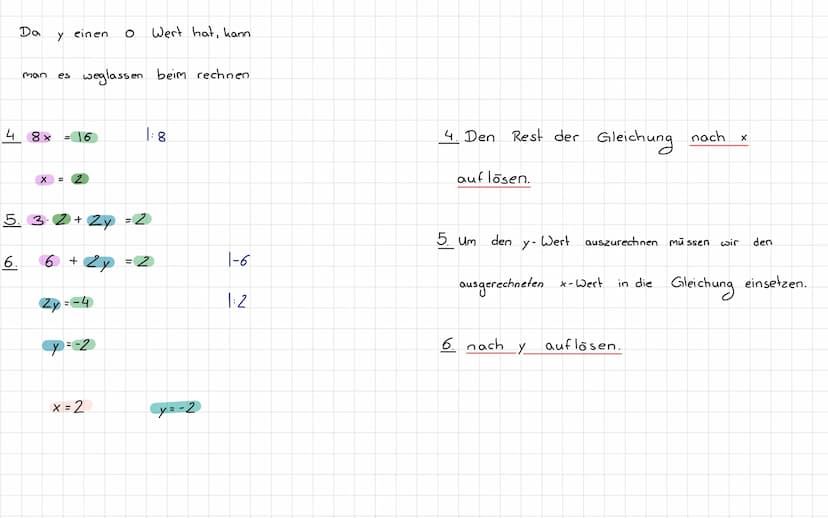 Da y einen 0 Wert hat, kann
man es weglassen beim rechnen
4 8x = 16 |:8
x = 2
5. 3·2 + 2y = 2
6. 6 + 2y = 2 |-6
2y = -4 |:2
y = -2
x = 2 y = -2
4. Den Rest der Gleichung nach x
auflösen.
5 Um den y-Wert auszurechnen müssen wir den
ausgerechneten x-Wert in die Gleichung einsetzen.
6. nach y auflösen.